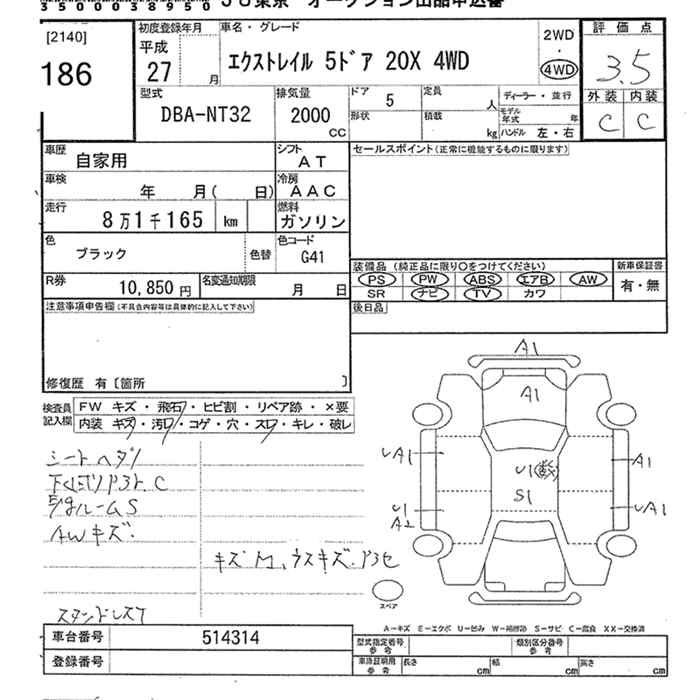 35000038950 JU東京 オークション出品申込書
[2140]
186
初度登録年月
平成
27 月
車名・グレード
エクストレイル 5ドア 20X 4WD
2WD
・
4WD
評価点
3.5
外装 内装
C C
型式
DBA-NT32
排気量
2000
CC
ドア 5
形状
定員 人
積載 kg
ディーラー・並行
モデル年式 年
ハンドル 左・右
車歴 自家用
シフト AT
車検 年 月( 日)
冷房 AAC
走行 8万1千165 km
燃料 ガソリン
色 ブラック
色替
色コード G41
R券 10,850 円
名変通知期限 月 日
セールスポイント(正常に機能するものに限ります)
装備品(純正品に限り○をつけてください)
PS PW ABS エアB AW
SR ナビ TV カワ
新車保証書
有・無
後日品
注意事項申告欄(不具合内容等は具体的に記入して下さい)
修復歴 有〔箇所 〕
検査員記入欄
FW キズ・飛石・ヒビ割・リペア跡・×要
内装 キズ・汚レ・コゲ・穴・スレ・キレ・破レ
シートヘタリ
C
ルームS
AWキズ.
キズ M、ウスキズ.
A1
A1
UA1
U1
S1
A1
U1
A2
UA1
スペア
A-キズ E-エクボ U-凹み W-補修跡 S-サビ C-腐食 XX-交換済
車台番号 514314
登録番号
型式指定番号 参考
類別区分番号 参考
車庫証明用 参考 長さ cm 幅 cm 高さ cm